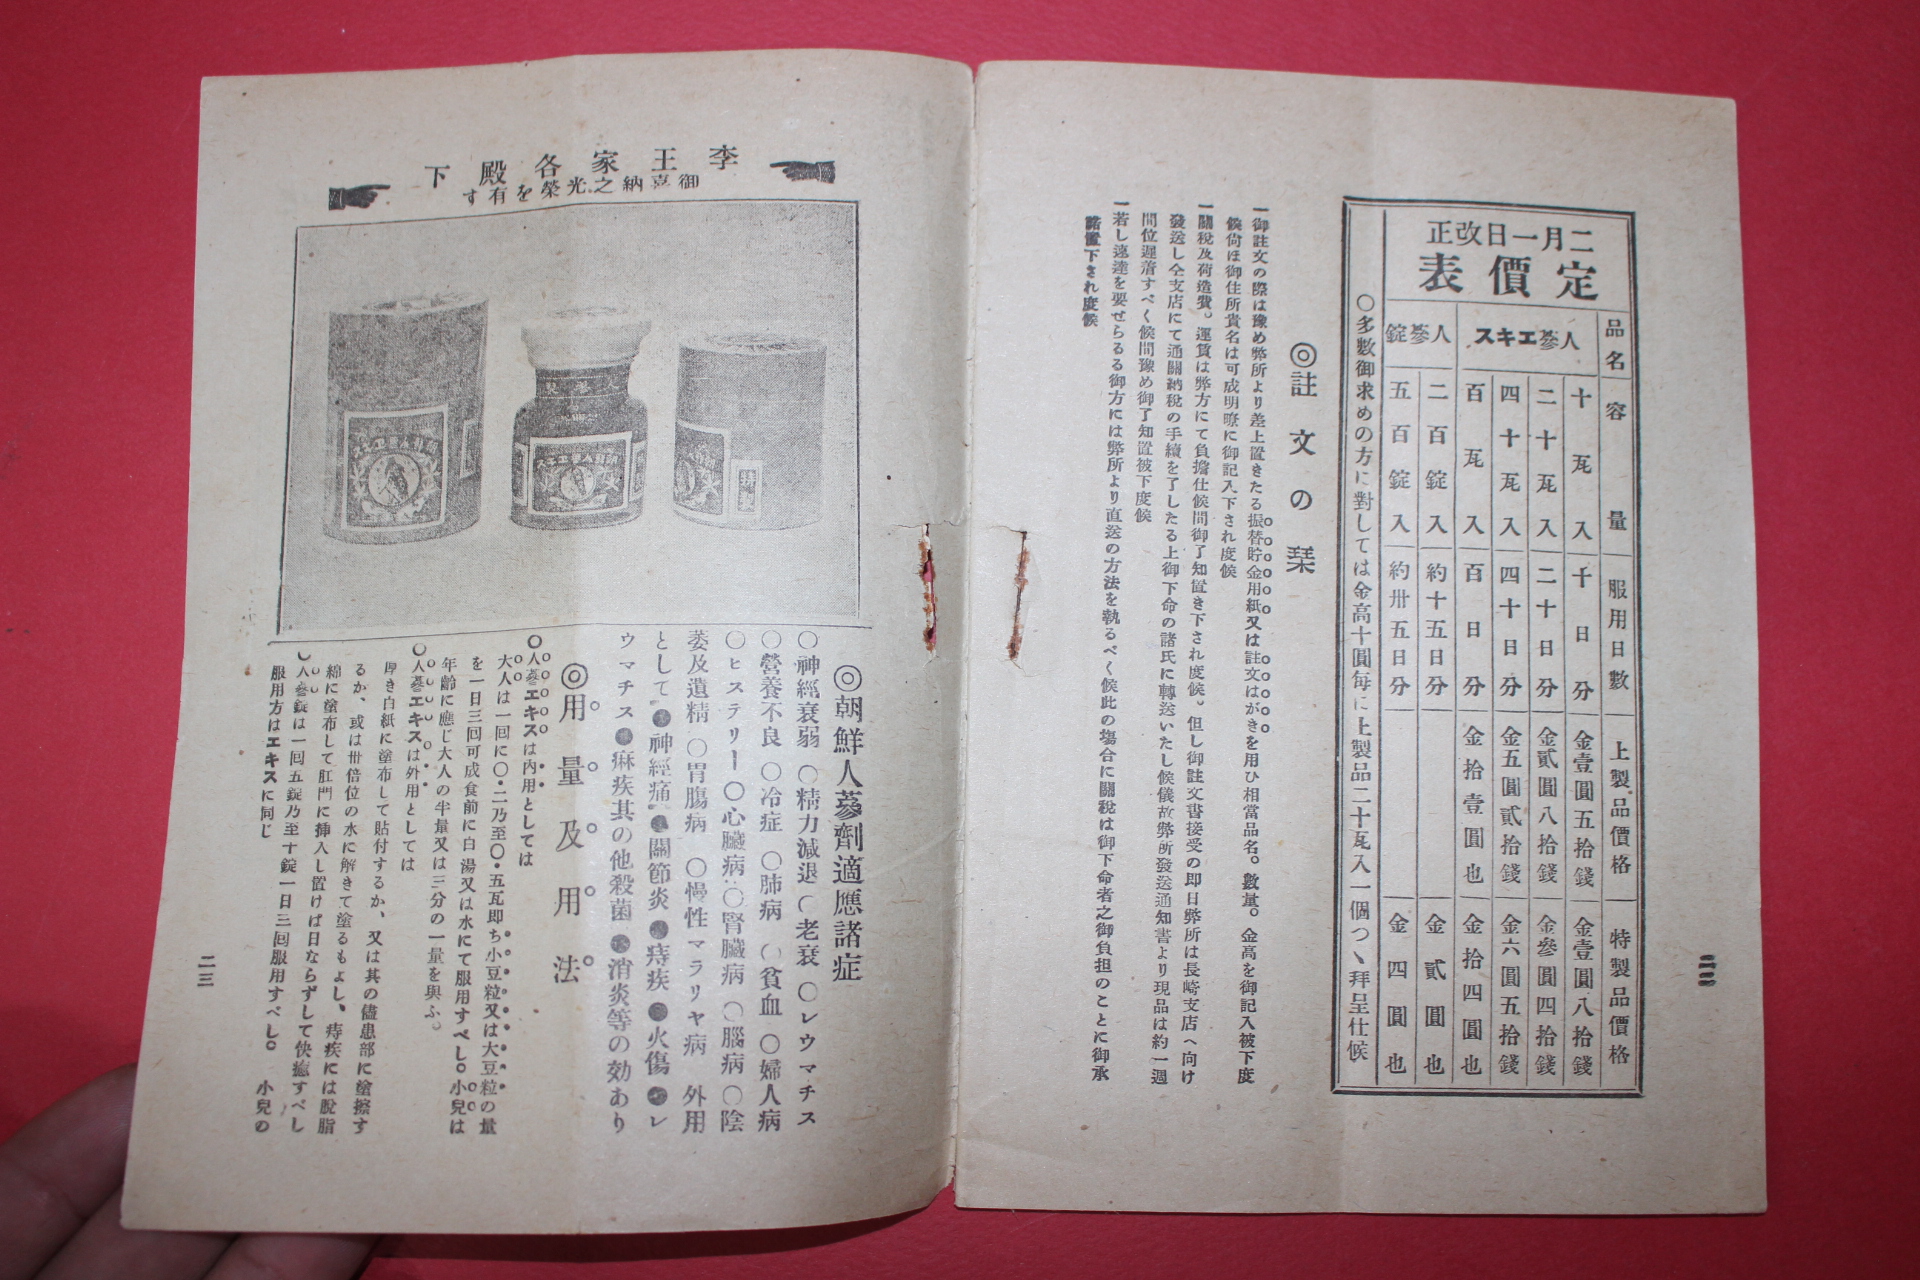 二月一日改正
定價表
品名
容量
服用日數
上製品價格
特製品價格
人蔘エキス
十瓦入
千日分
金壹圓五拾錢
金壹圓八拾錢
二十瓦入
二十日分
金貳圓八拾錢
金參圓四拾錢
四十瓦入
四十日分
金五圓貳拾錢
金六圓五拾錢
百瓦入
百日分
金拾壹圓也
金拾四圓也
人蔘錠
二百錠入
約十五日分
金貳圓也
五百錠入
約卅五日分
金四圓也
○多數御求めの方に對しては金高十圓每に上製品二十瓦入一個つゝ拜呈仕候
◎註文の栞
一御註文の際は豫め弊所より差上置きたる振替貯金用紙又は註文はがきを用ひ相當品名。數量。金高を御記入被下度
候尙ほ御住所貴名は可成明瞭に御記入下され度候
一關稅及荷造費。運賃は弊方にて負擔仕候間御了知置き下され度候。但し御註文書接受の即日弊所は長崎支店へ向け
發送し仝支店にて通關納稅の手續を了したる上御下命の諸氏に轉送いたし候儀故弊所發送通知書より現品は約一週
間位遲着すべく候間豫め御了知置被下度候
一若し速達を要せらるる御方には弊所より直送の方法を執るべく候此の塲合に關稅は御下命者之御負担のことに御承
諾置下され度候
二二
李王家各殿下
御喜納之光榮を有す
人蔘エキス
◎朝鮮人蔘劑適應諸症
○神經衰弱 ○精力減退 ○老衰 ○レウマチス
○營養不良 ○冷症 ○肺病 ○貧血 ○婦人病
○ヒステリー ○心臟病 ○腎臟病 ○腦病 ○陰
萎及遺精 ○胃腸病 ○慢性マラリヤ病 外用
として●神經痛●關節炎●痔疾●火傷●レ
ウマチス●痳疾其の他殺菌●消炎等の効あり
◎用量及用法
○人蔘エキスは內用としては
大人は一回に○・二乃至○・五瓦即ち小豆粒又は大豆粒の量
を一日三回可成食前に白湯又は水にて服用すべし。小兒は
年齡に應じ大人の半量又は三分の一量を與ふ。
○人蔘エキスは外用としては
厚き白紙に塗布して貼付するか、又は其の儘患部に塗擦す
るか、或は卅倍位の水に解きて塗るもよし、痔疾には脫脂
綿に塗布して肛門に挿入し置けば日ならずして快癒すべし
○人蔘錠は一回五錠乃至十錠一日三回服用すべし。 小兒の
服用方はエキスに同じ
二三